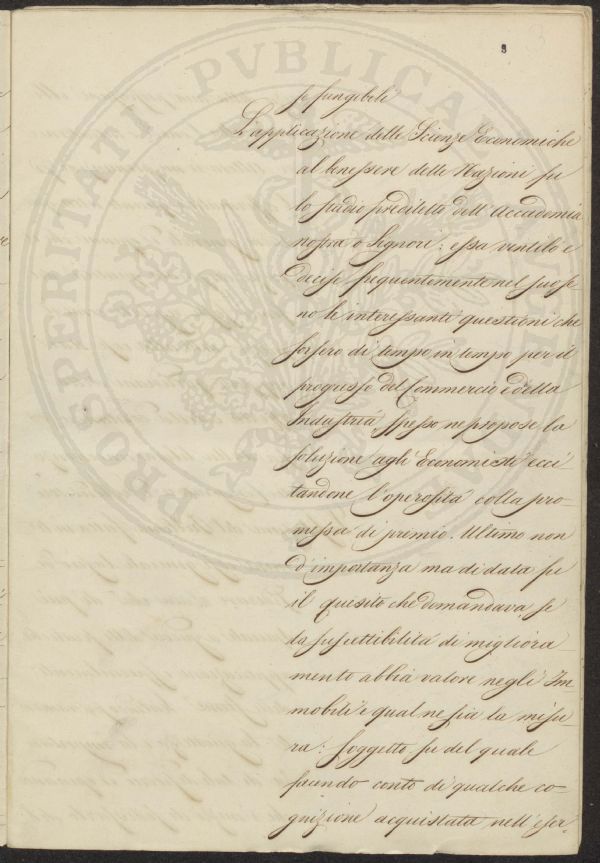 3
si fungibili
L'applicazione delle Scienze Economiche
al benessere delle Nazioni fu
lo studio prediletto dell'Accademia
nostra o Signori: essa ventilò e
decise frequentemente nel suo se
no le interessanti questioni che
sorsero di tempo in tempo per il
progresso del Commercio e della
Industria, spesso ne propose la
soluzione agli Economisti ecci-
tandone l'operosità colla pro-
messa di premio. Ultimo non
d'importanza ma di data fu
il quesito che domandava, se
la suscettibilità di migliora-
mento abbia valore negli Im
mobili e qual ne sia la misu
ra: Soggetto fu del quale
facendo conto di qualche co-
gnizione acquistata nell'eser-
PROSPERITATI PVBLICAE